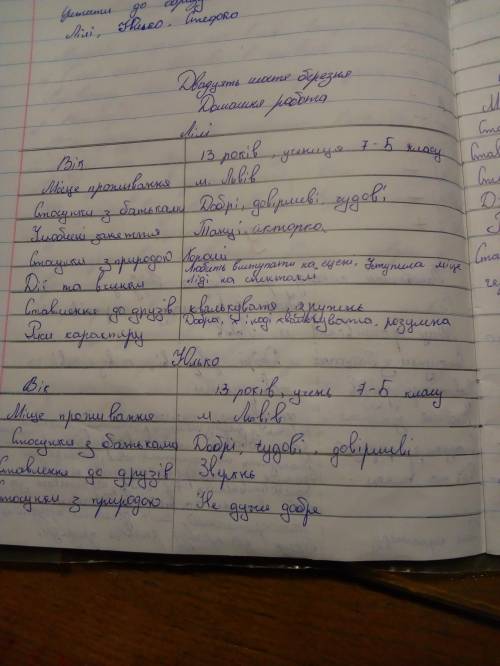 цитати до образу
Лілі, Юлько, Стефко
Двадцять шосте березня
Домашня робота
Лілі
Вік 13 років, учениця 7-Б класу
Місце проживання м. Львів
Стосунки з батьками Добрі, довірливі, чудові
Улюблені заняття Танці, акторка
Стосунки з природою Хороші
Дії та вчинки Любить виступати на сцені, Уступила місце Ліді на спектаклі
Ставлення до друзів
Риси характеру Добра, іноді, розумна
Юлько
Вік 13 років, учень 7-Б класу
Місце проживання м. Львів
Стосунки з батьками Добрі, чудові, довірливі
Ставлення до друзів
Стосунки з природою Не дуже добре